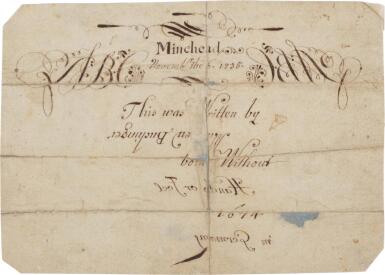 Minehead
ABC
Novemb the 6.
This was Written by
Matthew Buchinger
born Without
Hands or Feet
1674
in Germany